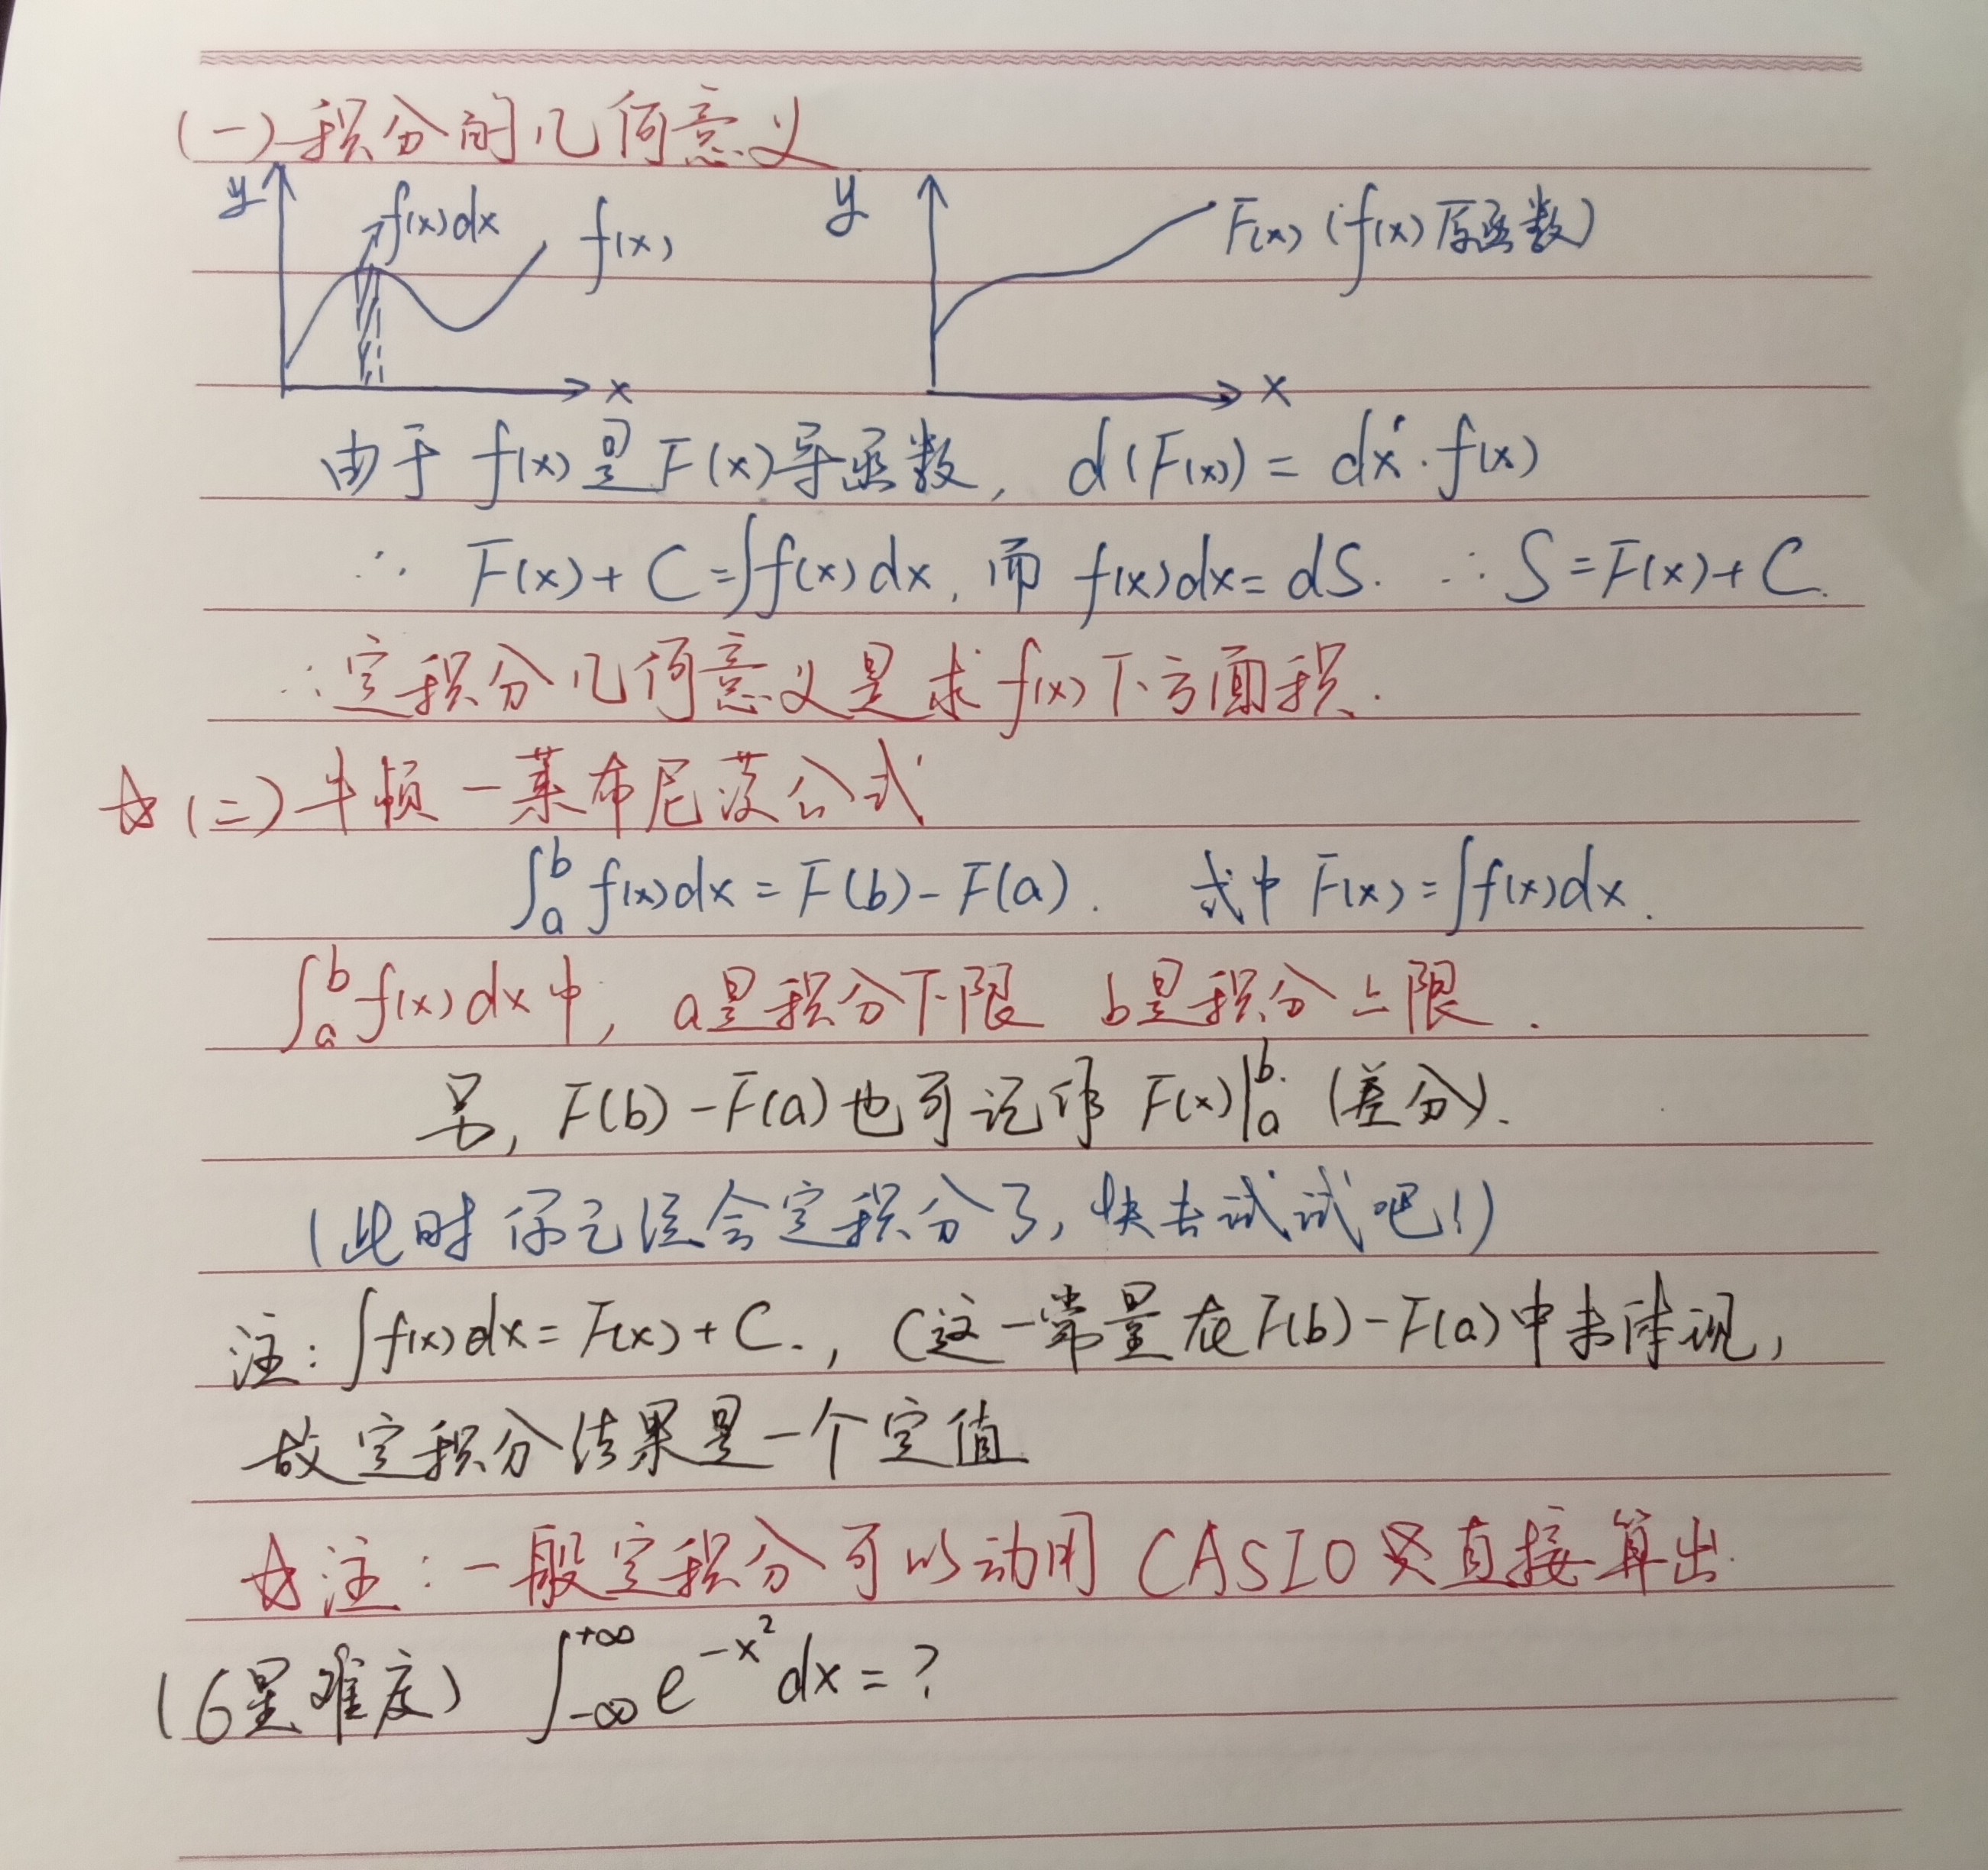 (一)积分的几何意义
y f(x)dx f(x) x
y F(x) (f(x)原函数) x
由于 f(x)是F(x)导函数, d(F(x)) = dx·f(x)
∴ F(x)+C=∫f(x)dx, 而 f(x)dx=dS. ∴S=F(x)+C.
∴定积分几何意义是求f(x)下方面积.
☆(二)牛顿-莱布尼茨公式
∫_a^b f(x)dx = F(b)-F(a). 式中 F(x)=∫f(x)dx.
∫_a^b f(x)dx中, a是积分下限 b是积分上限.
另, F(b)-F(a)也可记作 F(x)|_a^b (差分).
(此时你已经会定积分了,快去试试吧!)
注: ∫f(x)dx=F(x)+C., (这一常量在F(b)-F(a)中未体现,
故定积分结果是一个定值
☆注:一般定积分可以动用 CASIO 直接算出.
(6星难度) ∫_{-∞}^{+∞} e^{-x²}dx=?